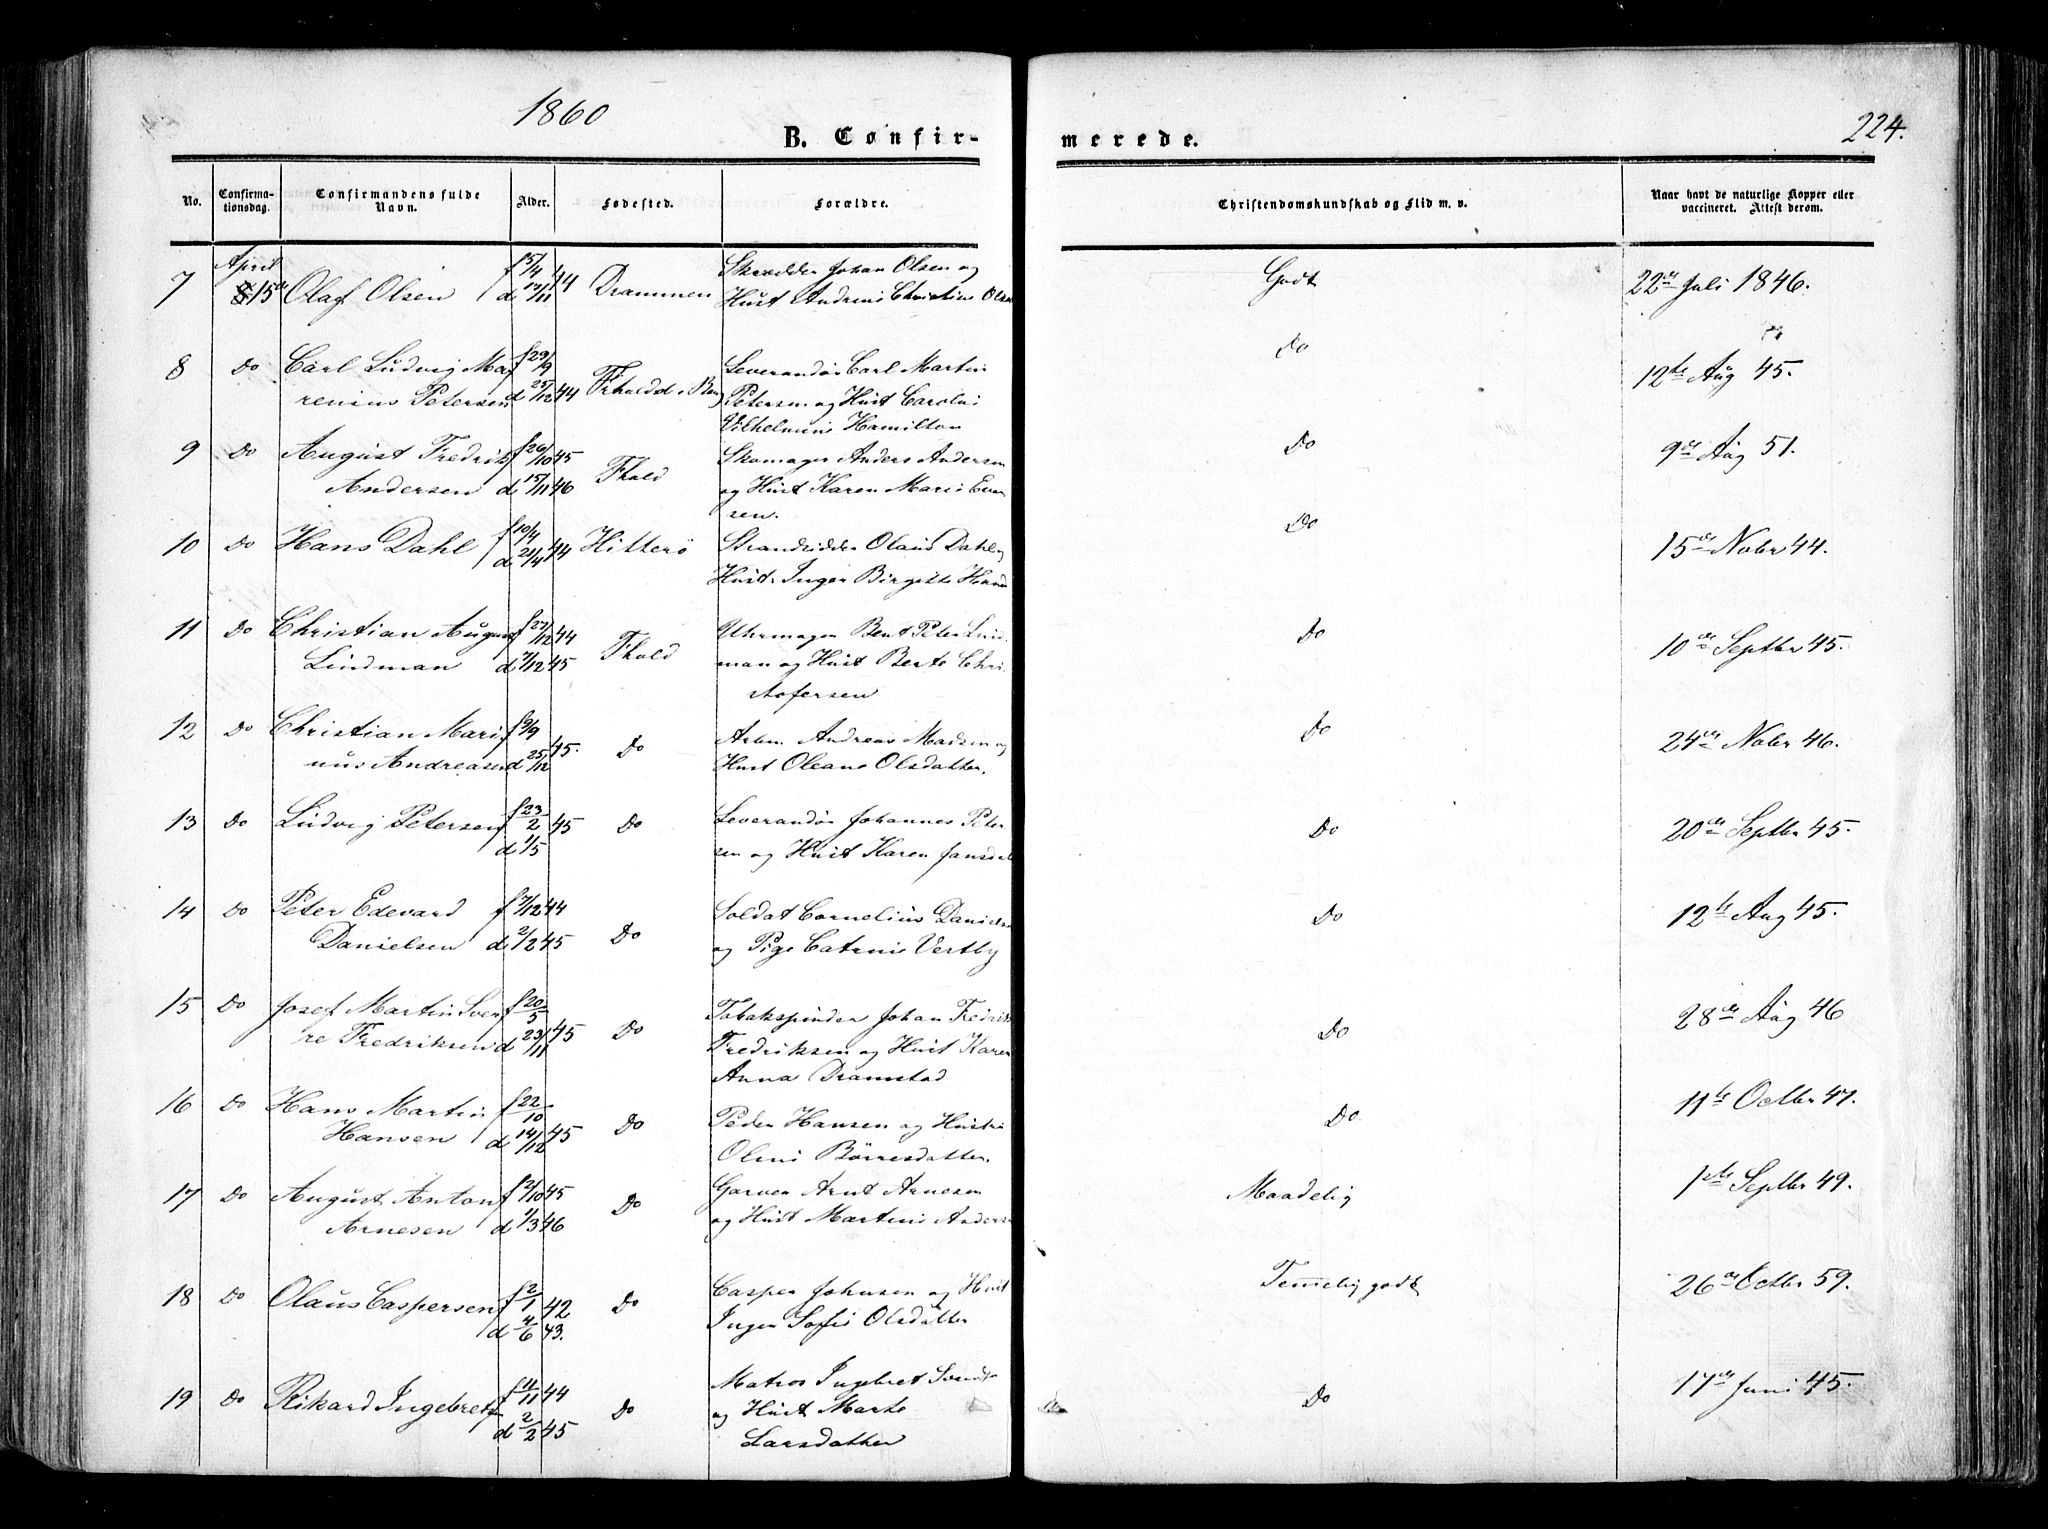 1860
224.
B. Confir-
merede.
No.
Confirma-
tionsdag.
Confirmandens fulde
Navn.
Alder.
Fødested.
Forældre.
Christendomskundskab og Flid m. v.
Naar havt de naturlige Kopper eller
vaccineret. Attest derom.
7 April 15de Olaf Olsen f 15/4 d 17/11 44 Drammen Skrædder Johan Olsen og
Hust Andrine Christine Olsen Godt 22de Juli 1846.
8 Do Carl Ludvig Ma- f 29/9 Fr.hald Leverandør Carl Martin Do 12te Aug 45.
renius Petersen d 25/12 44 Petersen og Hust Caroline
Vilhelmine Hamilton
9 Do August Fredrik f 26/10 45 Fhald Skomager Anders Andersen Do 9de Aug 51.
Andersen d 15/11 46 og Hust Karen Marie
sen.
10 Do Hans Dahl f 10/4 d 21/4 44 Hitterö Strandridder Olaus Dahl og Do 15de Nobr 44.
Hust. Inger Birgitte
11 Do Christian August f 27/12 44 Fhald Uhrmager Bent Peter Lind- Do 10de Septbr 45.
Lindman d 7/12 45 man og Hust Berte Chri-
stofersen
12 Do Christian Mari- f 9/9 45. Do Arbm. Andreas Madsen og Do 24de Nobr 46.
nus Andreasen d 25/12 Hust Oleane Olsdatter.
13 Do Ludvig Petersen f 23/2 45 Do Leverandør Johannes Peter- Do 20de Septbr 45.
d 1/5 sen og Hust Karen Jansdat
14 Do Peter Edevard f 7/12 44 Do Soldat Cornelius Daniels Do 12te Aug 45.
Danielsen d 2/2 45 og Pige Catrine Vestby
15 Do Josef Martin Sver- f 20/5 Do Tobakspinder Johan Fredrik Do 28de Aug 46
re Fredriksen d 23/11 45 Fredriksen og Hust Karen
Anna Dramstad
16 Do Hans Martin f 22/10 Do Peder Hansen og Hustru Do 11te Octbr 47.
Hansen d 14/12 45 Oline Börresdatter.
17 Do August Anton f 2/10 45 Do Garver Arnt Arnesen Maadelig 1ste Septbr 49.
Arnesen d 1/3 46 og Hust Martine Anders
18 Do Olaus Caspersen f 2/1 42 Do Casper Johnsen og Hust Temmelig godt 26de Octbr 59.
d 4/6 43. Inger Sofie Olsdatter
19 Do Rikard Ingebretsen f 4/11 44 Do Matros Ingebret Svends Do 17de Juni 45.
d 2/2 45 og Hust Marte
Larsdatter